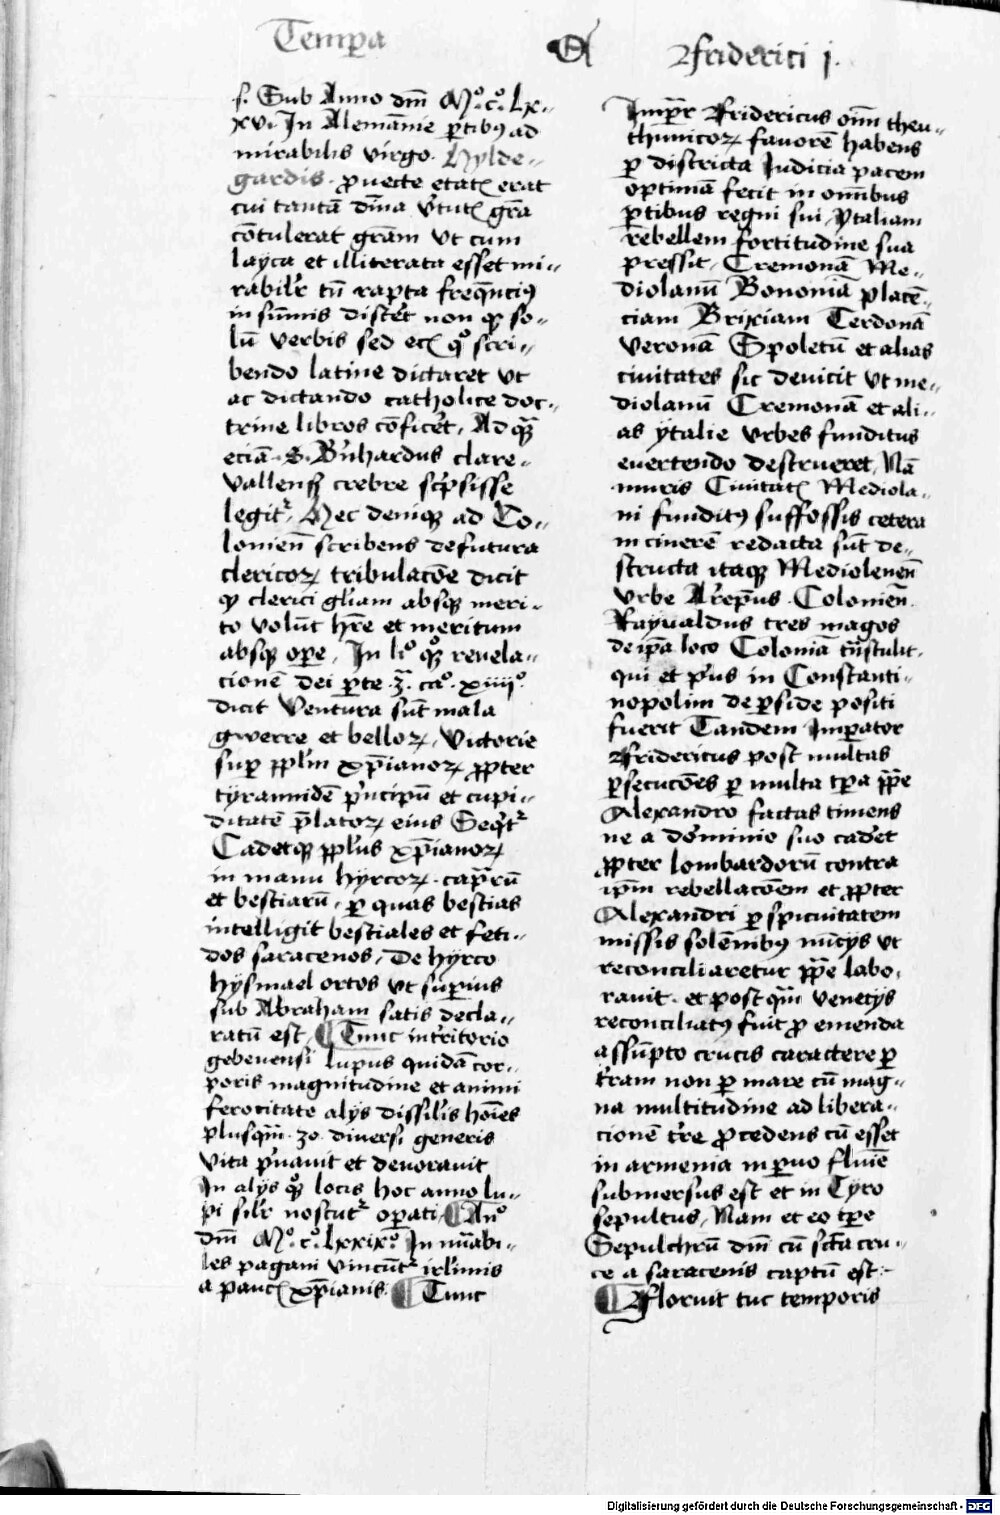 Tempa Friderici j.
s. Sub Anno dm̄ Mº.cº.lx-
xvi. In Alemānie ꝑtibꝰ ad
mirabilis virgo. Hylde-
gardis. ꝓuecte etatꝭ erat
cui tantā dīna v̉tutꝭ gr̄a
cōtulerat gr̄am vt cum
layca et illiterata esset mi-
rabilr̉ tn̄ rapta freqn̄ciꝰ
in sūmis disceret non qͦ so-
lū verbis sed ecꝭ qͦ scri-
bendo latine dictaret vt
ac dictando catholice doc-
trine libros cōficeret, Ad quā
eciā. S. Bn̉hardus clare-
vallenẞ crebre scp̉sisse
legitᷣ, Hec deniqꝫ ad Co-
lonien̄ scribens de futura
clericoꝝ tribulacōe dicit
qꝫ clerici gl̄iam absqꝫ meri-
to volūt hr̄e et meritum
absqꝫ oꝑe, In liº qͦqꝫ reuela-
cionē dei ꝑte .3ª. caº. xiiijº.
dicit Ventura sūt mala
gwerre et belloꝝ, victorie
suꝑ ppl̄m xp̄ianoꝝ ꝓpter
tyrannidē pͥncipū et cupi-
ditatē p̄latoꝝ eius Seqͥtᷣ
Cadetqꝫ ppl̄us xp̄ianoꝝ
in manu hyrcoꝝ. capraꝝ
et bestiarū, ꝑ quas bestias
intelligit bestiales et feti-
dos saracenos, De hyrco
hysmael ortos vt suꝑius
sub Abraham satis decla-
ratū est, ¶ Tunc in tr̉ritorio
gebenensi lupus quidā cor-
poris magnitudine et animi
ferocitate alijs dissil̄is hoīes
plusqm̄. 30. diuersi generis
vita pͥuauit et deuorauit
In alijs qͦqꝫ locis hoc anno lu-
pi silr̉ noscūtᷣ operati ¶ Anº
dm̄ Mº.cº.lxxixº. In nūabi-
les pagani vincūtᷣ irl̄imis
a paucꝭ xp̄ianis. ¶ Tunc
Impr̄r Fridericus oīm theu-
thunicoꝝ fauorē habens
ꝑ districta Iudicia pacem
optimā fecit in omībus
ꝑtibus regni sui, ytaliam
rebellem fortitudine sua
pressit, Cremonā Me-
diolanū Bononiā placē-
ciam Brixiam Terdonā
Veronā Spoletū et alias
ciuitates sic deuicit vt me-
diolanū Cremonā et ali-
as ytalie vrbes funditus
euertendo destrueret, Nā
muris Ciuitatꝭ Mediola-
ni funditꝰ suffossis cetera
in cinerē redacta sūt de-
structa itaqꝫ Mediolenēn
vrbe Ar̉epūs. Colonien̄.
Rayualdus tres magos
de ip̄a loco Coloniā tn̄stulit,
qui et pͥus in Constanti-
nopolim de ꝑside positi
fuerit Tandem Imꝑator
Fridericus post multas
ꝑsecucōes ꝑ multa tꝑa pp̄e
Alexandro factas timens
ne a dominio suo caderet
ꝓpter lombardorū contra
ip̄m rebellacōem et ꝓpter
Alexandri ꝑspicuitatem
missis solēnibꝰ nūcijs vt
reconciliaretur pp̄e labo-
rauit. et postqm̄ venecijs
reconciliatꝰ fuit ꝓ emenda
assūpto crucis caractere ꝑ
tr̉ram non ꝑ mare cū mag-
na multitudine ad libera-
cionē tr̉re ꝓcedens cū esset
in armenia in ꝑuo fluīe
submersus est et in Tyro
sepultus, Nam et eo tꝑe
Sepulchrū dm̄ cū sct̄a cru-
ce a saracenis captū est.
¶ Floruit tūc temporis
Digitalisierung gefördert durch die Deutsche Forschungsgemeinschaft - DFG